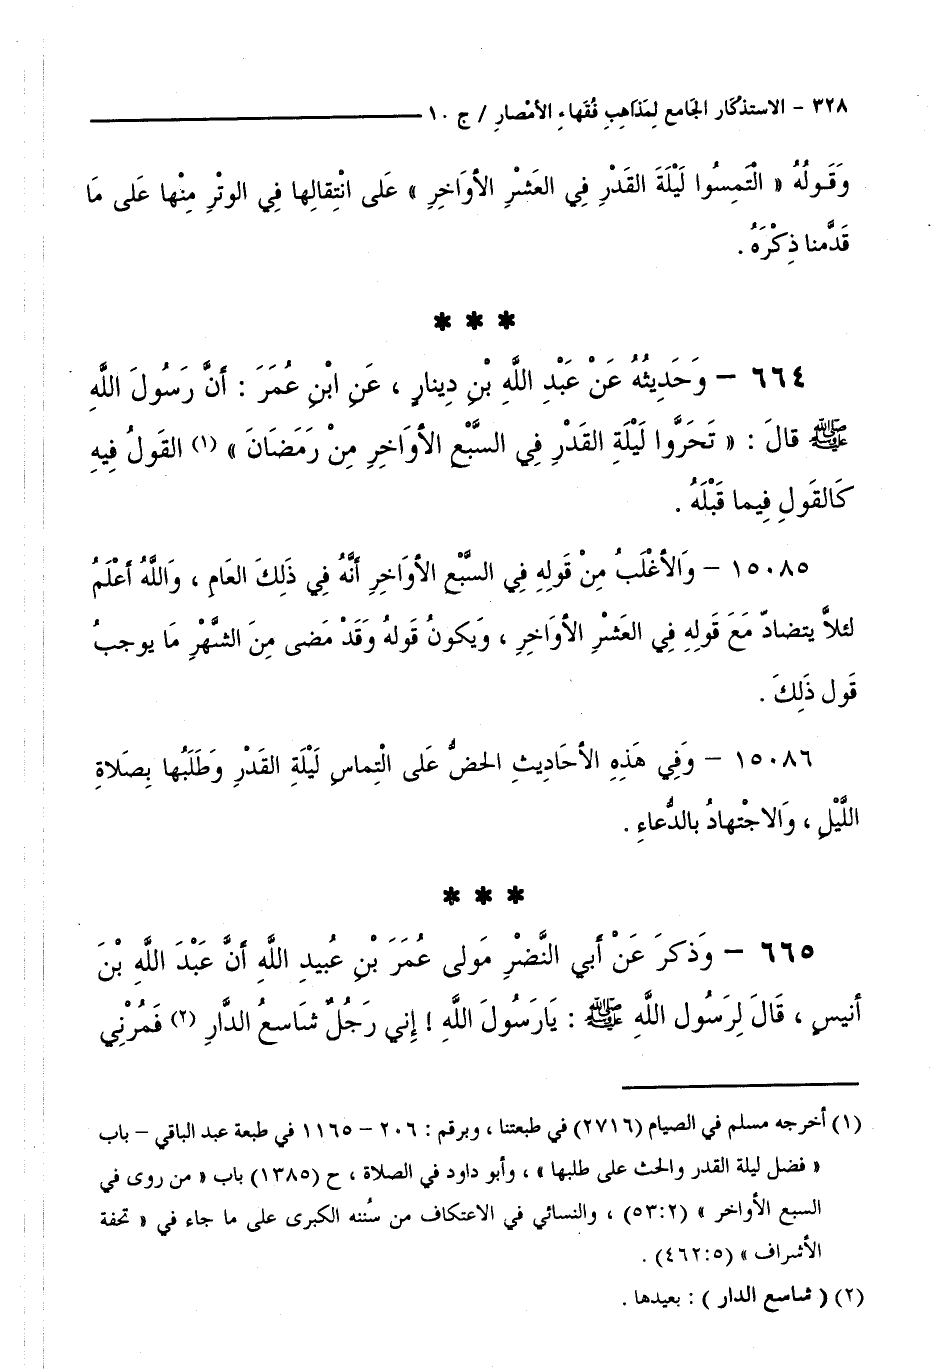 ٣٢٨ - الاستذكار الجامع لِمَذاهِبِ فُقَهاءِ الأمْصارِ / ج ١٠
وَقَولُهُ « الْتَمِسُوا لَيْلَةَ القَدْرِ فِي العَشْرِ الأوَاخِرِ » عَلى انْتِقالِها فِي الوتْرِ مِنْها عَلى مَا
قَدَّمنا ذِكْرَهُ .
* * *
٦٦٤ – وَحَدِيثُهُ عَنْ عَبْدِ اللَّهِ بْنِ دِينارٍ ، عَنِ ابْنِ عُمَرَ : أنَّ رَسُولَ اللَّهِ
ﷺ قالَ : « تَحَرَّوا لَيْلَةِ القَدْرِ فِي السَّبْعِ الأوَاخِرِ مِنْ رَمَضَانَ » (١) القَولُ فِيهِ
كَالقَولِ فِيما قَبْلَهُ .
١٥٠٨٥ – وَالأغْلَبُ مِنْ قَولِهِ فِي السَّبْعِ الأوَاخِرِ أنَّهُ فِي ذَلِكَ العَامِ ، وَاللَّهُ أعْلَمُ
لئلاَّ يتضادّ مَعَ قَولِهِ فِي العَشْرِ الأوَاخِرِ ، وَيَكونُ قَولهُ وَقَدْ مَضى مِنَ الشَّهْرِ مَا يوجبُ
قَول ذَلِكَ .
١٥٠٨٦ – وَفِي هَذِهِ الأحَادِيثِ الحَضُّ عَلى الْتِماسِ لَيْلَةِ القَدْرِ وَطَلَبُها بِصَلاةِ
اللَّيْلِ ، وَالاجْتِهادُ بالدُّعاءِ .
* * *
٦٦٥ – وَذكرَ عَنْ أبي النَّضْرِ مَولى عُمَرَ بْنِ عُبيدِ اللَّهِ أنَّ عَبْدَ اللَّهِ بْنَ
أنيسٍ ، قَالَ لِرَسُول اللَّهِ ﷺ : يَارَسُولَ اللَّهِ ! إني رَجُلٌ شَاسعُ الدَّارِ (٢) فَمُرْنِي
(١) أخرجه مسلم في الصيام (٢٧١٦) في طبعتنا ، وبرقم : ٢٠٦ – ١١٦٥ في طبعة عبد الباقي – باب
« فضل ليلة القدر والحث على طلبها » ، وأبو داود في الصلاة ، ح (١٣٨٥) باب « من روى في
السبع الأواخر » (٥٣:٢) ، والنسائي في الاعتكاف من سُننه الكبرى على ما جاء في « تحفة
الأشراف » (٤٦٢:٥) .
(٢) ( شاسع الدار ) : بعيدها .